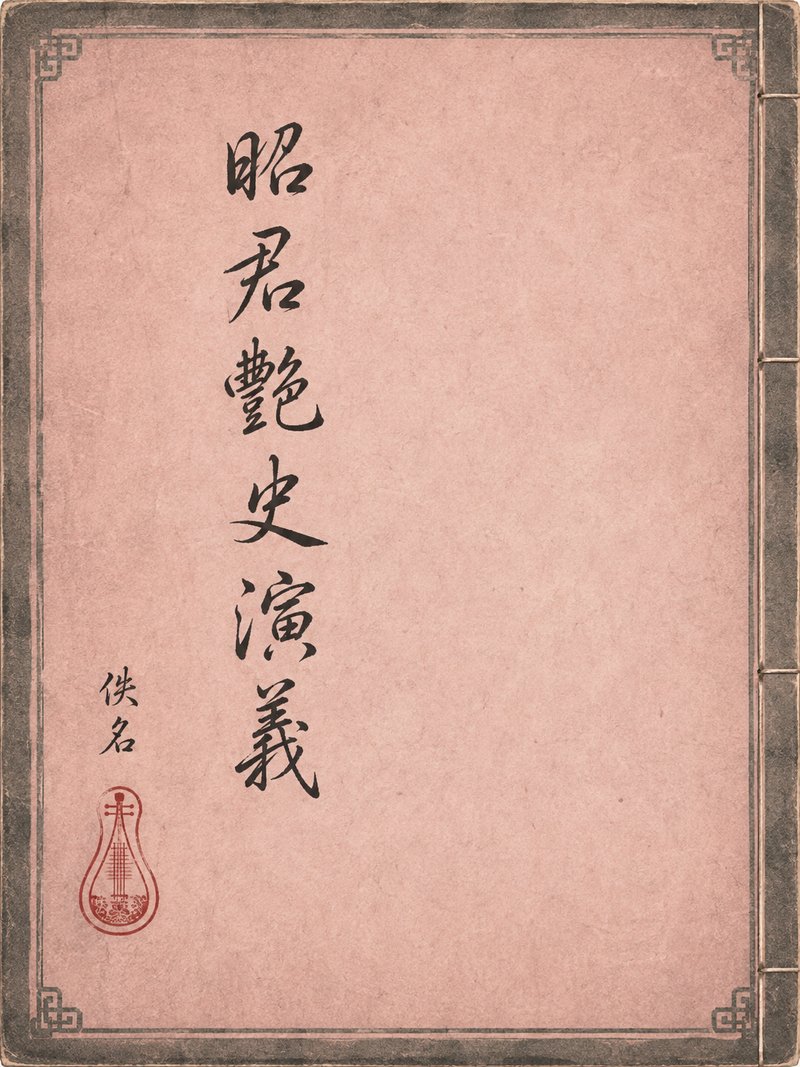 昭君艷史演義
佚名